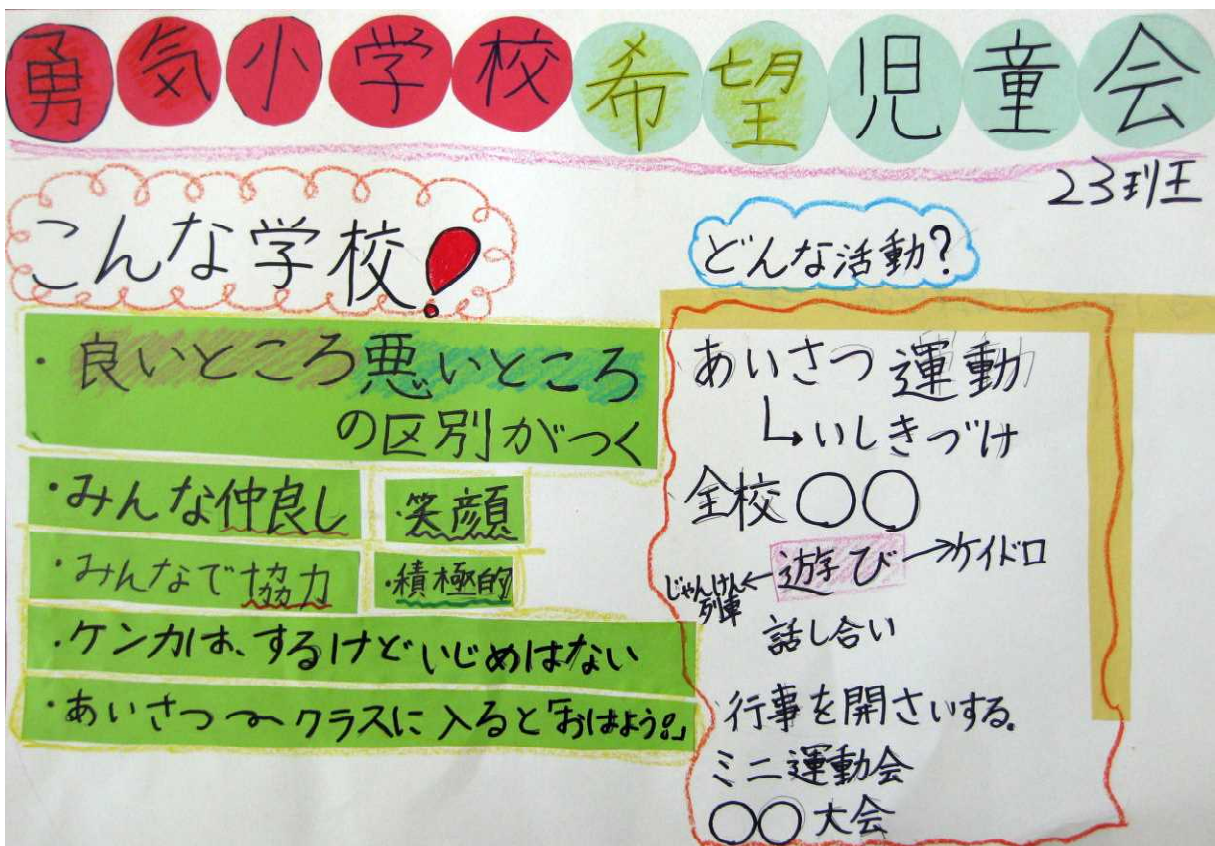 勇気小学校 希望児童会
23班
こんな学校!
・良いところ悪いところ
の区別がつく
・みんな仲良し
・笑顔
・みんなで協力
・積極的
・ケンカは、するけどいじめはない
・あいさつ〜クラスに入ると「おはよう。」
どんな活動?
あいさつ運動
↳いしきづけ
全校○○
じゃんけん列車←遊び→ケイドロ
話し合い
行事を開さいする。
ミニ運動会
○○大会